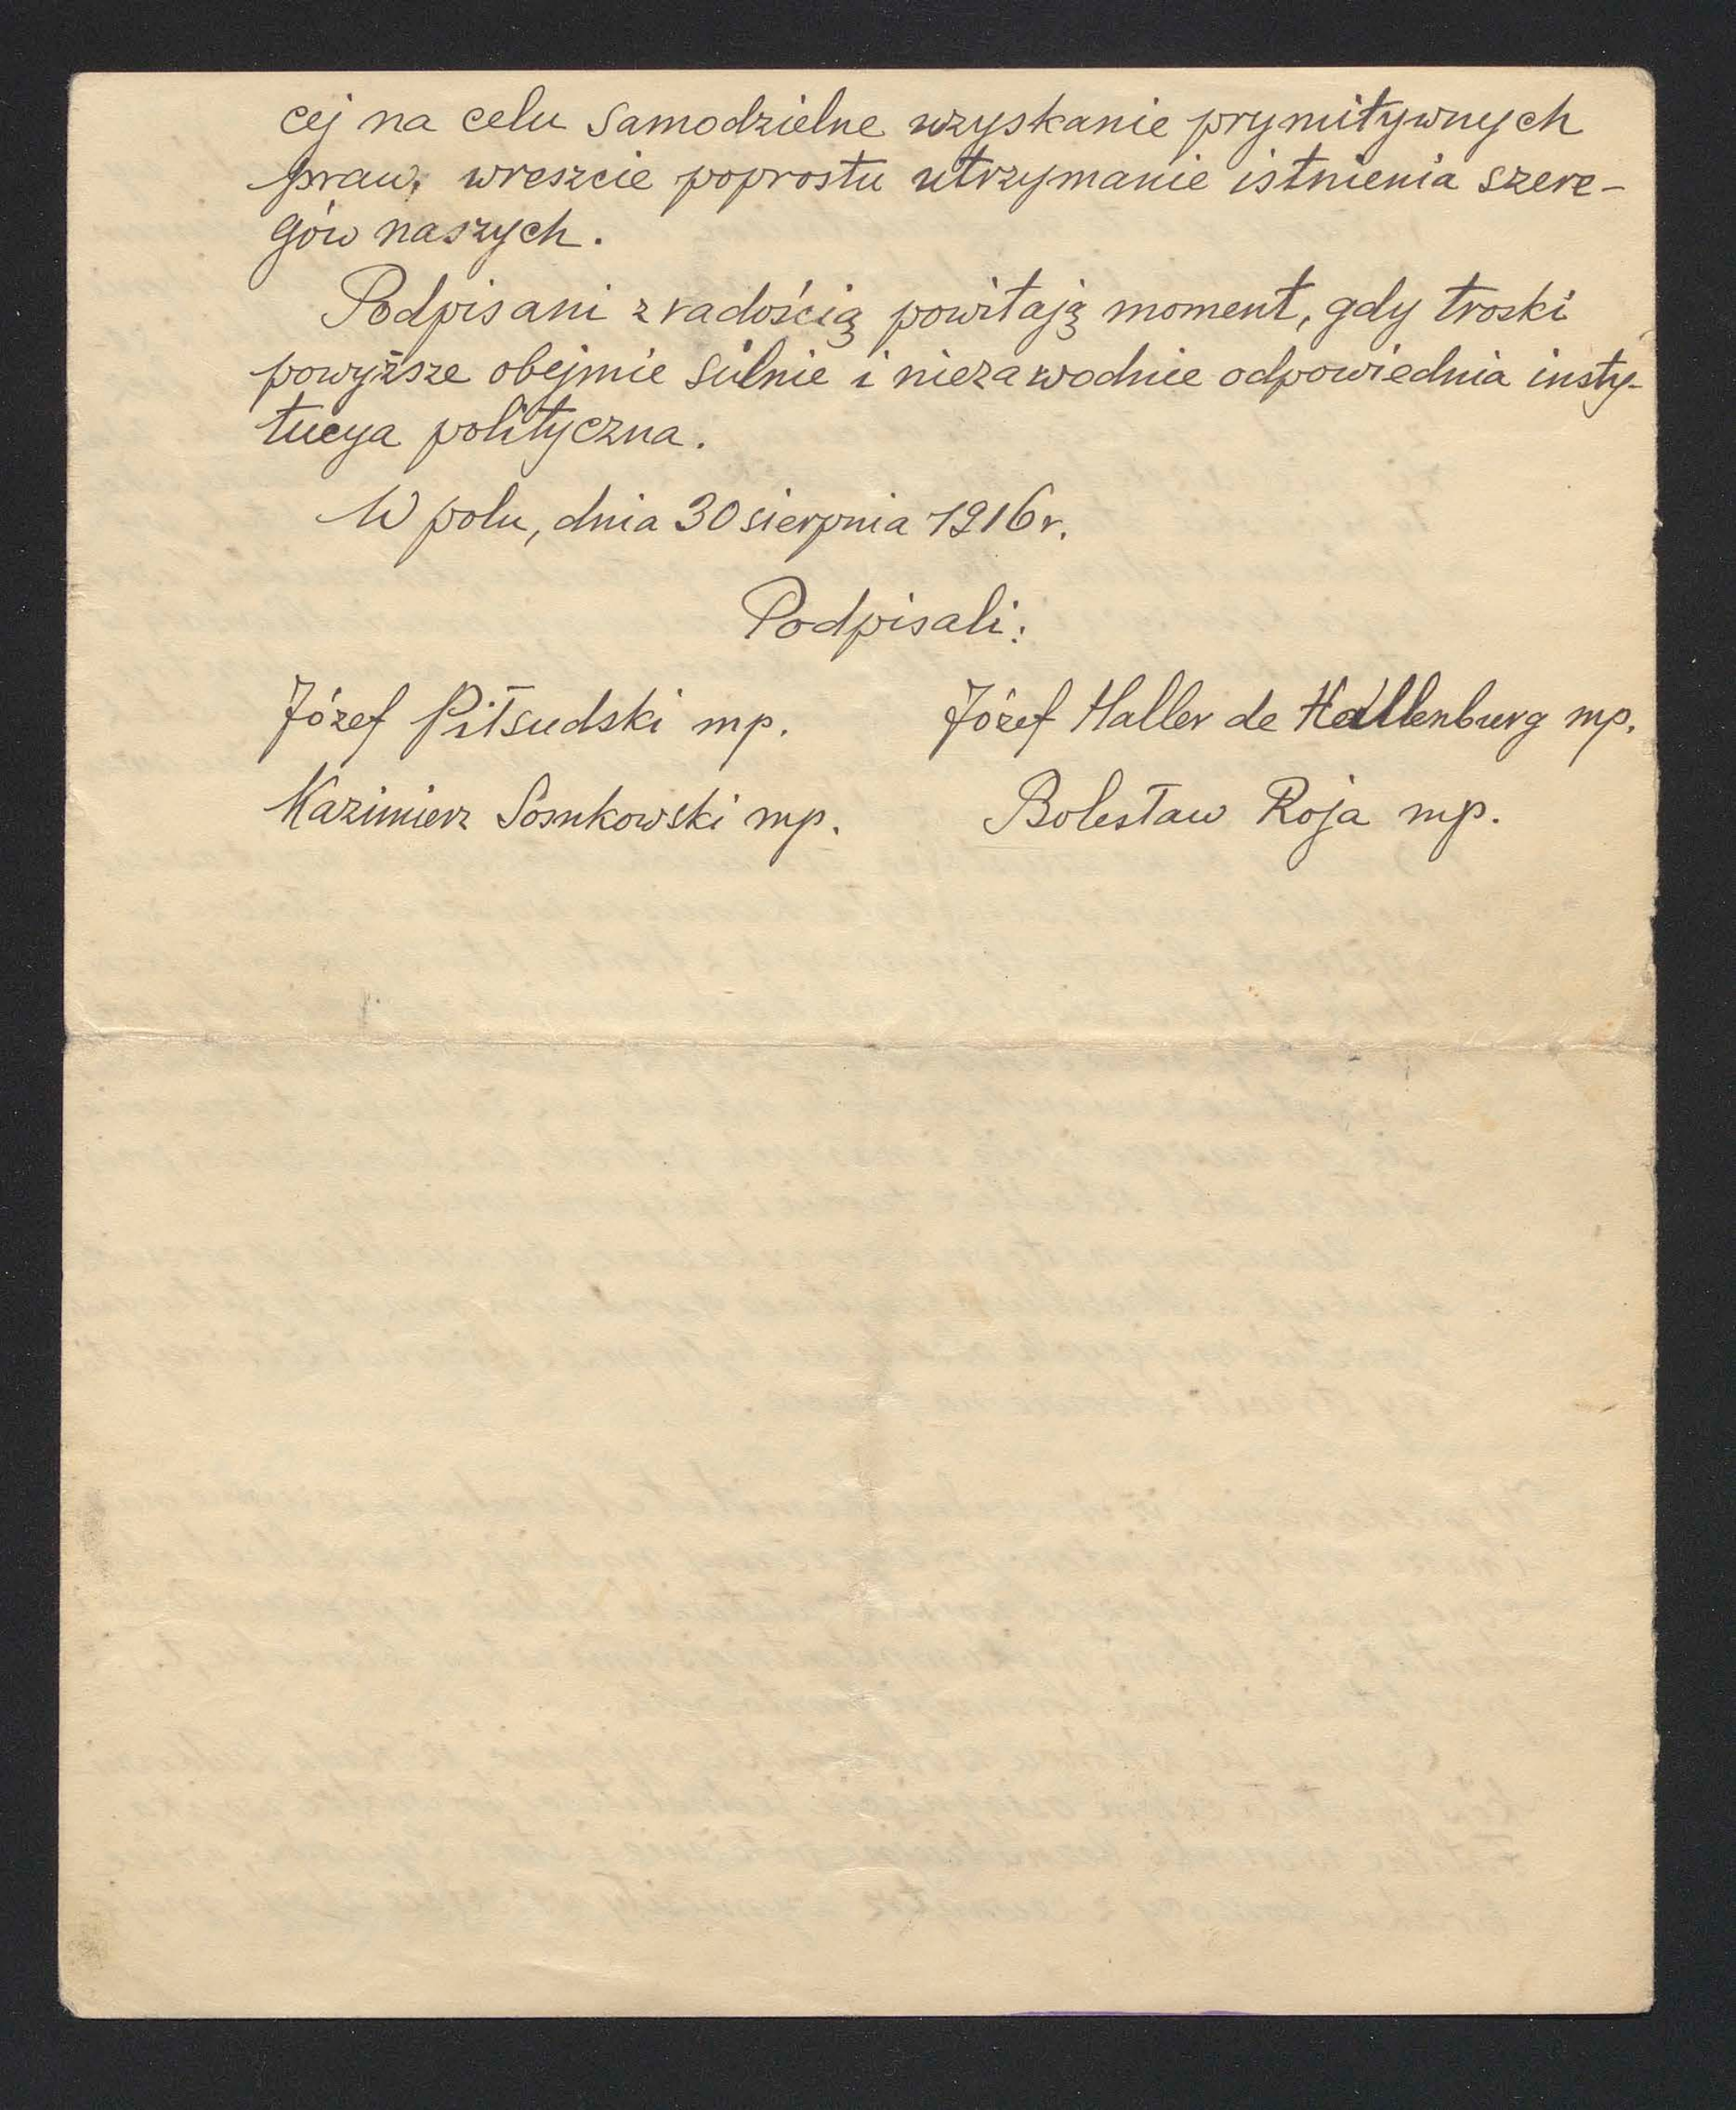 cej na celu samodzielne uzyskanie prymitywnych
praw, wreszcie poprostu utrzymanie istnienia szere-
gów naszych.
Podpisani z radością powitają moment, gdy troski
powyższe obejmie silnie i niezawodnie odpowiednia insty-
tucya polityczna.
W polu, dnia 30 sierpnia 1916 r.
Podpisali:
Józef Piłsudski mp. Józef Haller de Hallenburg mp.
Kazimierz Sosnkowski mp. Bolesław Roja mp.